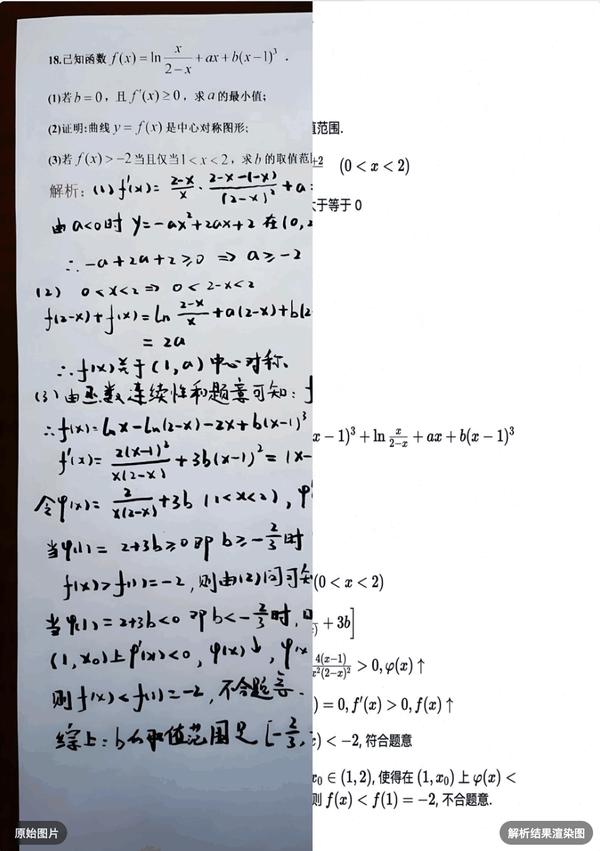 18.已知函数 f(x)=ln x/(2-x) +ax+b(x-1)³ .
(1)若b=0，且 f′(x)≥0，求a的最小值;
(2)证明:曲线 y=f(x)是中心对称图形;
(3)若 f(x)>-2当且仅当1<x<2，求b的取值范
解析: (1) f'(x)= (2-x)/x · (2-x-(-x))/(2-x)² + a
由a<0时 y=-ax²+2ax+2 在(0,2
∴ -a+2a+2≥0 ⇒ a≥-2
(2) 0<x<2 ⇒ 0<2-x<2
f(2-x)+f(x)=ln (2-x)/x +a(2-x)+b(2
=2a
∴f(x)关于(1,a)中心对称、
(3)由函数连续性和题意可知: f
∴f(x)=lnx-ln(2-x)-2x+b(x-1)³
f'(x)= 2(x-1)²/x(2-x) +3b(x-1)²=(x-
令φ(x)= 2/x(2-x) +3b (1<x<2), φ'
当φ(1)= 2+3b≥0即 b≥-2/3时
f(x)>f(1)=-2,则由(2)问可知
当φ(1)=2+3b<0 即b<-2/3时,
(1,x₀)上φ'(x)<0, φ(x)↓, φ(x
则f(x)<f(1)=-2,不合题意.
综上:b的取值范围是[-2/3,
值范围.
+2 (0<x<2)
大于等于 0
x-1)³+ln x/(2-x) +ax+b(x-1)³
(0<x<2)
+3b]
4(x-1)/x²(2-x)² >0,φ(x)↑
)=0,f'(x)>0,f(x)↑
)<-2, 符合题意
x₀∈(1,2), 使得在 (1,x₀) 上 φ(x)<
则 f(x)<f(1)=-2, 不合题意.
原始图片
解析结果渲染图